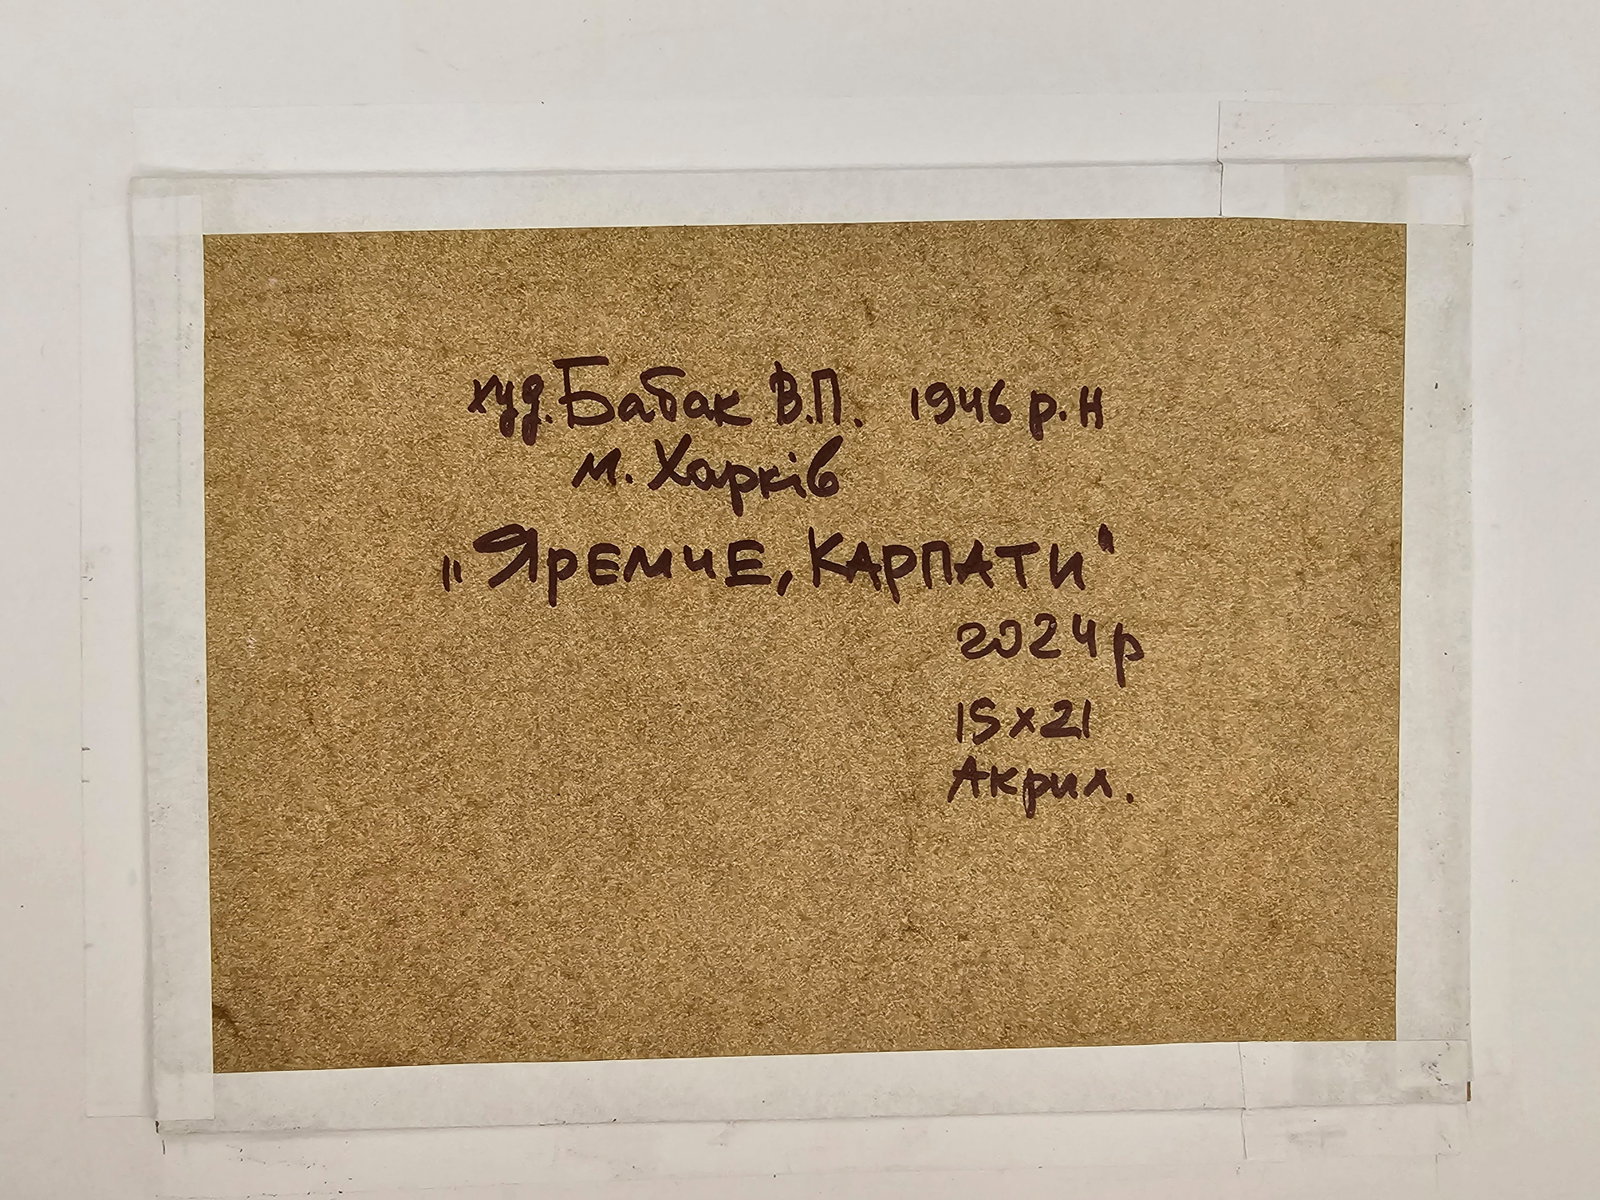 худ. Бабак В.П. 1946 р.н
м. Харків
„Яремче, Карпати“
2024р
15х21
Акрил.